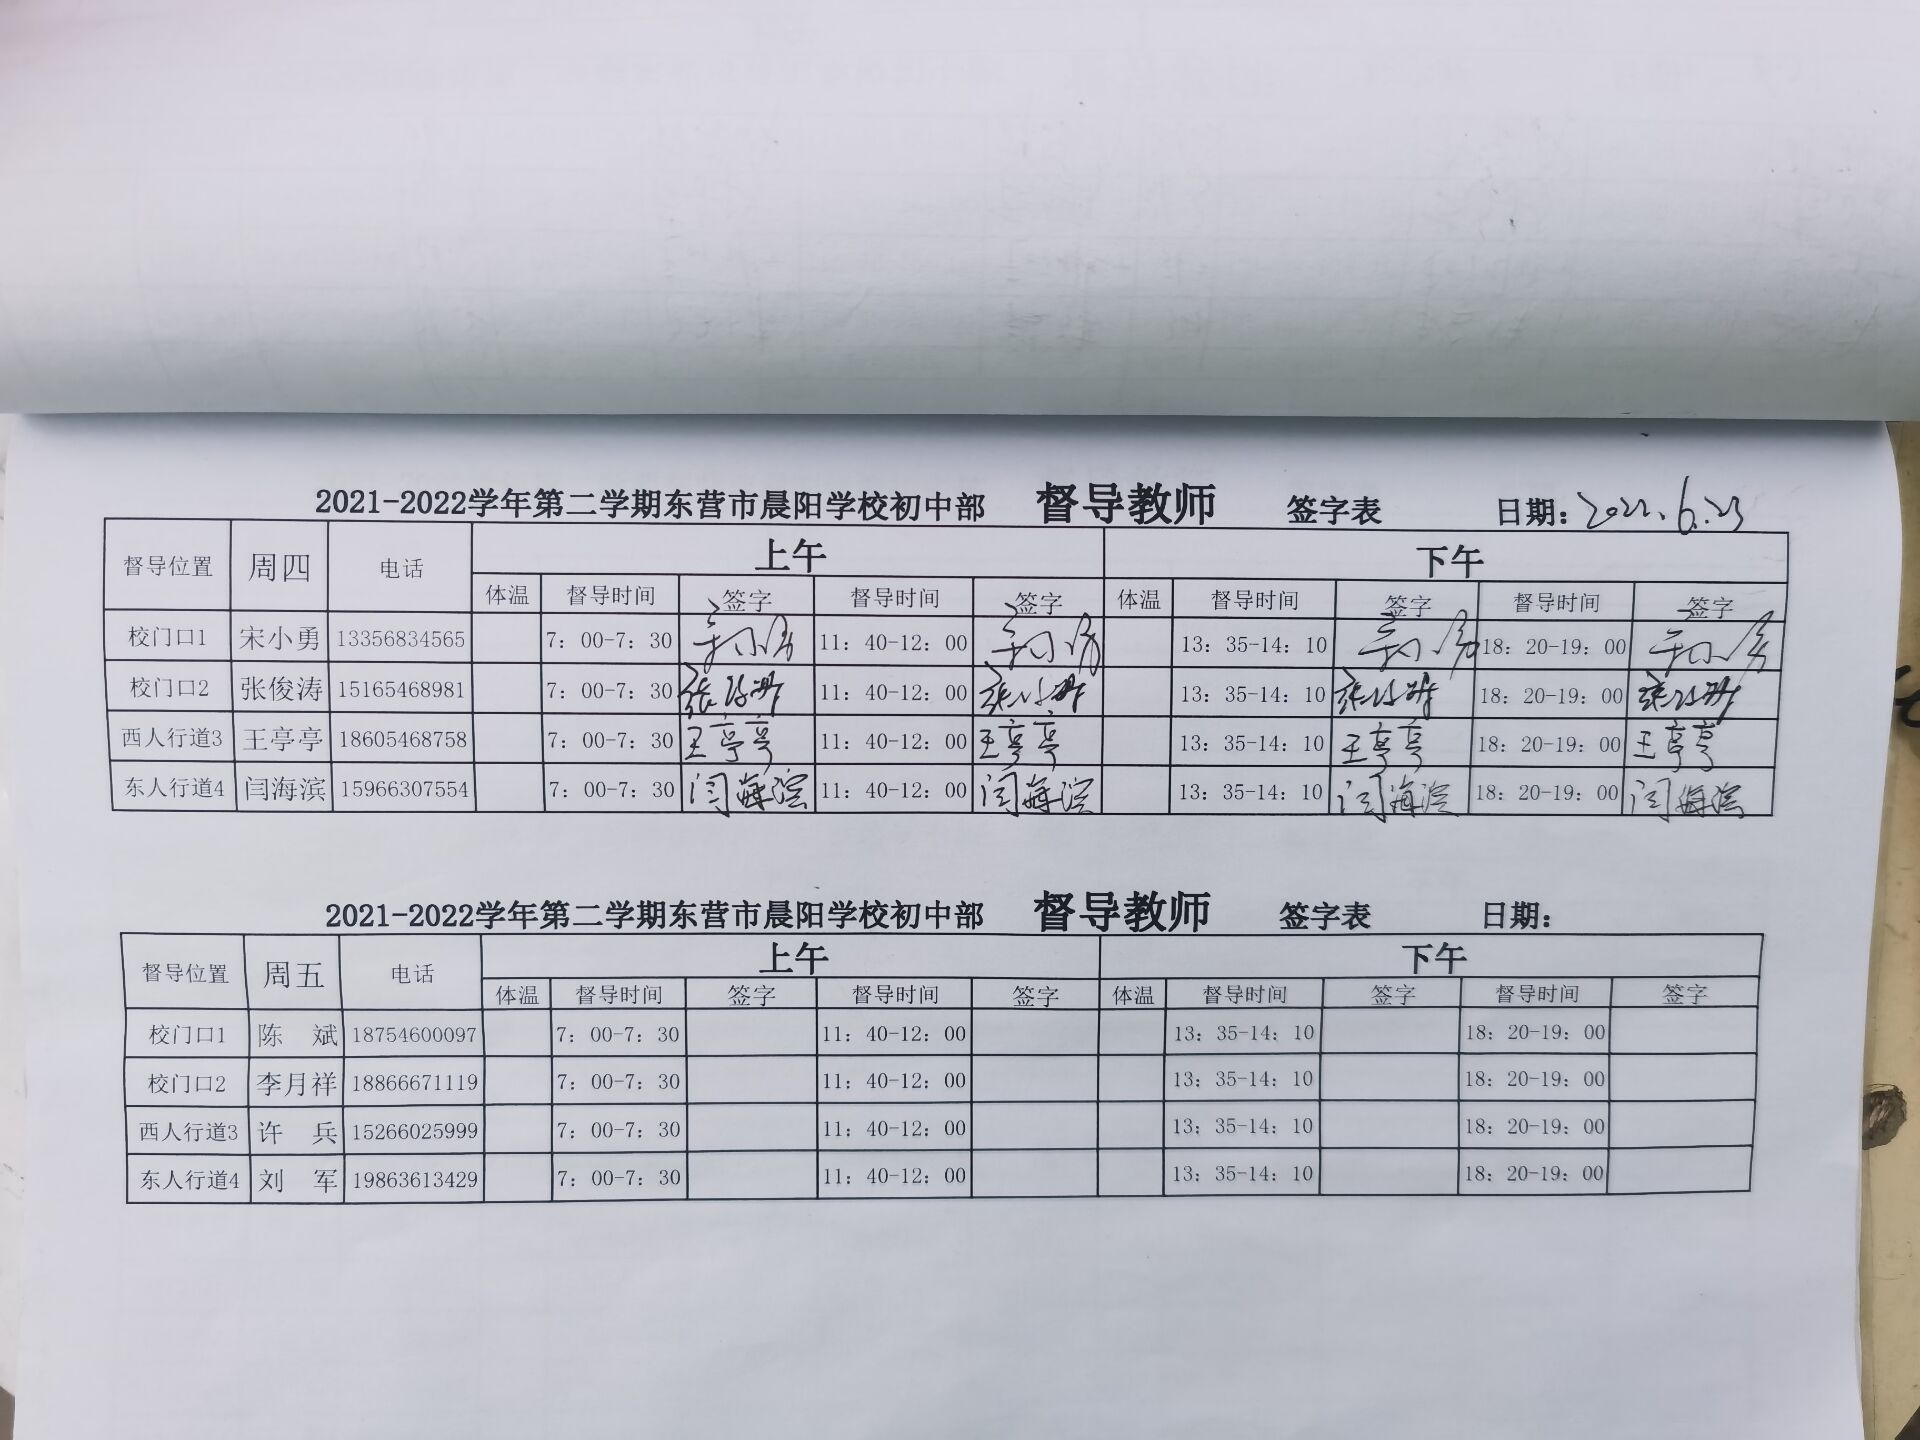 2021-2022学年第二学期东营市晨阳学校初中部 督导教师 签字表 日期：2022.6.23
督导位置 周四 电话 上午 下午
体温 督导时间 签字 督导时间 签字 体温 督导时间 签字 督导时间 签字
校门口1 宋小勇 13356834565 7：00-7：30 11：40-12：00 13：35-14：10 18：20-19：00
校门口2 张俊涛 15165468981 7：00-7：30 11：40-12：00 13：35-14：10 18：20-19：00
西人行道3 王亭亭 18605468758 7：00-7：30 王亭亭 11：40-12：00 王亭亭 13：35-14：10 王亭亭 18：20-19：00 王亭亭
东人行道4 闫海滨 15966307554 7：00-7：30 闫海滨 11：40-12：00 闫海滨 13：35-14：10 闫海滨 18：20-19：00 闫海滨
2021-2022学年第二学期东营市晨阳学校初中部 督导教师 签字表 日期：
督导位置 周五 电话 上午 下午
体温 督导时间 签字 督导时间 签字 体温 督导时间 签字 督导时间 签字
校门口1 陈 斌 18754600097 7：00-7：30 11：40-12：00 13：35-14：10 18：20-19：00
校门口2 李月祥 18866671119 7：00-7：30 11：40-12：00 13：35-14：10 18：20-19：00
西人行道3 许 兵 15266025999 7：00-7：30 11：40-12：00 13：35-14：10 18：20-19：00
东人行道4 刘 军 19863613429 7：00-7：30 11：40-12：00 13：35-14：10 18：20-19：00